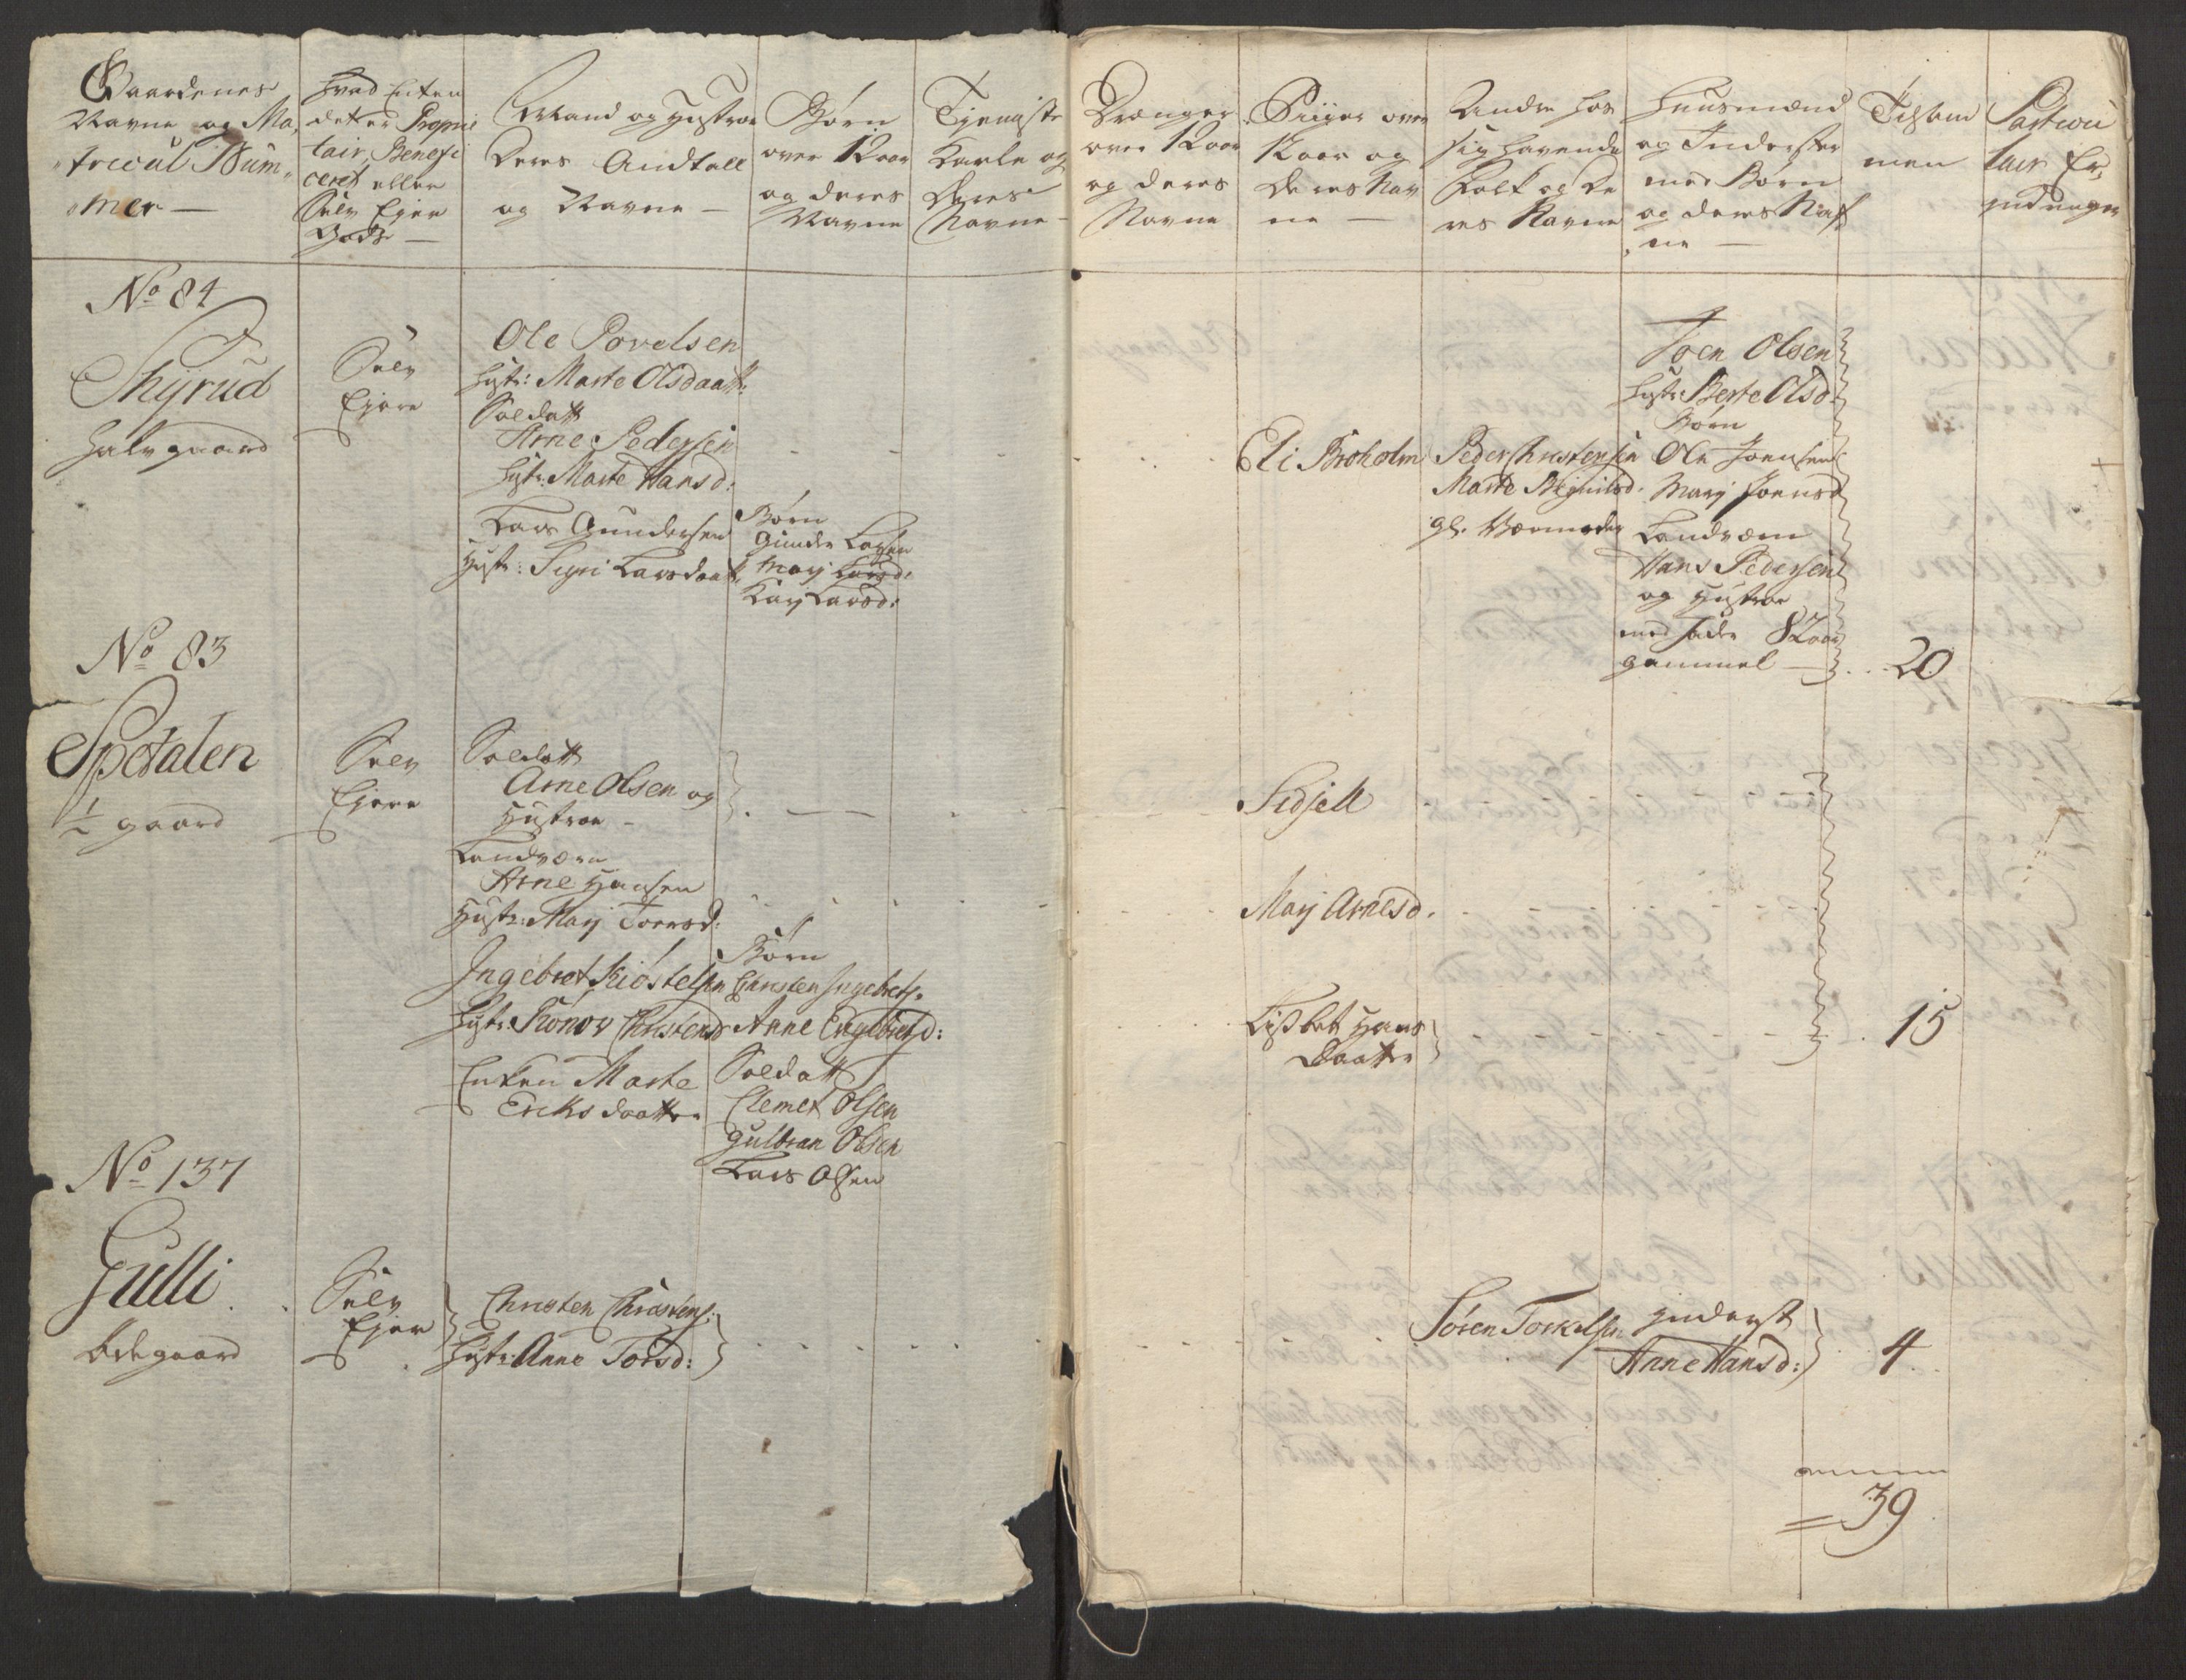 Gaardenes
Navne og Ma„
„tricul Num„
„mer —
Hvad Enten
det er Proprie
tair, Benefi
ceret eller
Selv Ejer
Gods —
Mand og Hustroe
Deres Andtall
og Navne —
Børn
over 12 aar
og deres
Navne
Tjeniste
Karle og
Deres
Navne —
Drænger
over 12 aar
og deres
Navne
Piiger over
12 aar og
Deres Nav
ne —
Andre hos
sig havende
Folk og De
res Navne
Huusmænd
og Inderster
med Børn
og deres Naf
„ne —
Tilsam
men
Particu
lair Er„
indringer
No 84
Thÿrud
halv gaard
Selv
Ejere
Ole Povelsen
Hustr: Marte Olsdaatt:
Soldatt
Arne Pedersen
Hustr: Marte Hansd:
Lars Gundersen
Hustr: Sigri Larsdaatt:
Børn
Gunder Larsen
Marj Larsd:
Karj Larsd:
Eli Broholm
Peder Christensen
Marte
gl.
Joen Olsen
Hustr: Berte Olsd.
Børn
Ole Joensen
Marj Joensd
Landværn
Hans Pedersen
og Hustroe
med fader 82 aar
gammel —
20
No 83
Spetalen
1/2 gaard
Selv
Ejere
Soldatt
Arne Olsen og
Hustroe —
Landværn
Arne Hansen
Hustr: Marj Torersd:
Ingebret Kiøstelsen
Hustr: Rønov Christensd
Enken Marte
Eriks daatter
Børn
Christen Ingebrets.
Anne Engebretsd:
Soldatt
Clemet Olsen
Gulbran Olsen
Lars Olsen
Sidsell
Marj Arnesd.
Lisbet Hans
Daatter
15
No 137
Gulli
ødegaard
Selv
Ejer
Christen Christens:
Hustr: Anne Torsd:
Søren Torkelsen
inderst
Anne Hansd:
4
39